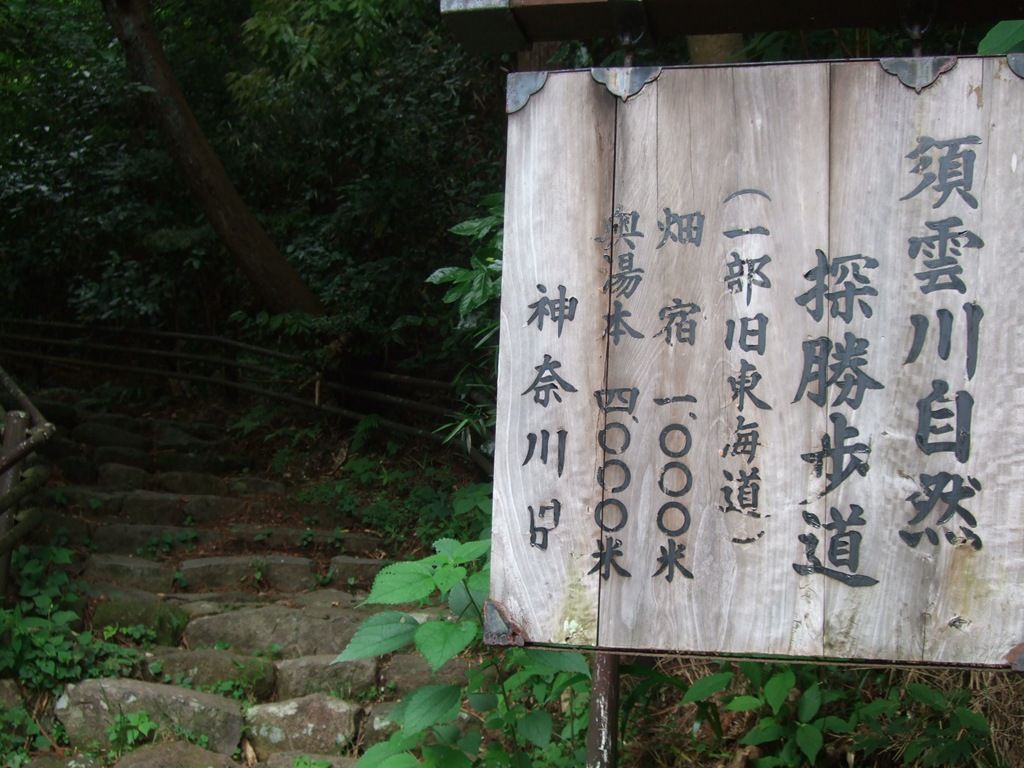 須雲川自然
探勝歩道
(一部旧東海道)
畑宿 一、〇〇〇米
奥湯本 四、〇〇〇米
神奈川